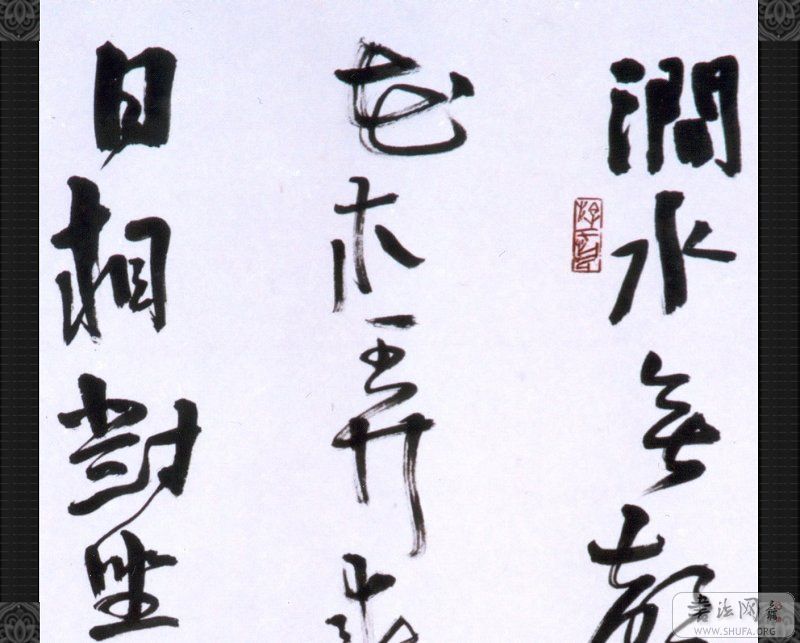 澗水無聲
花木弄春
日相對坐
书法网
WWW.SHUFA.ORG